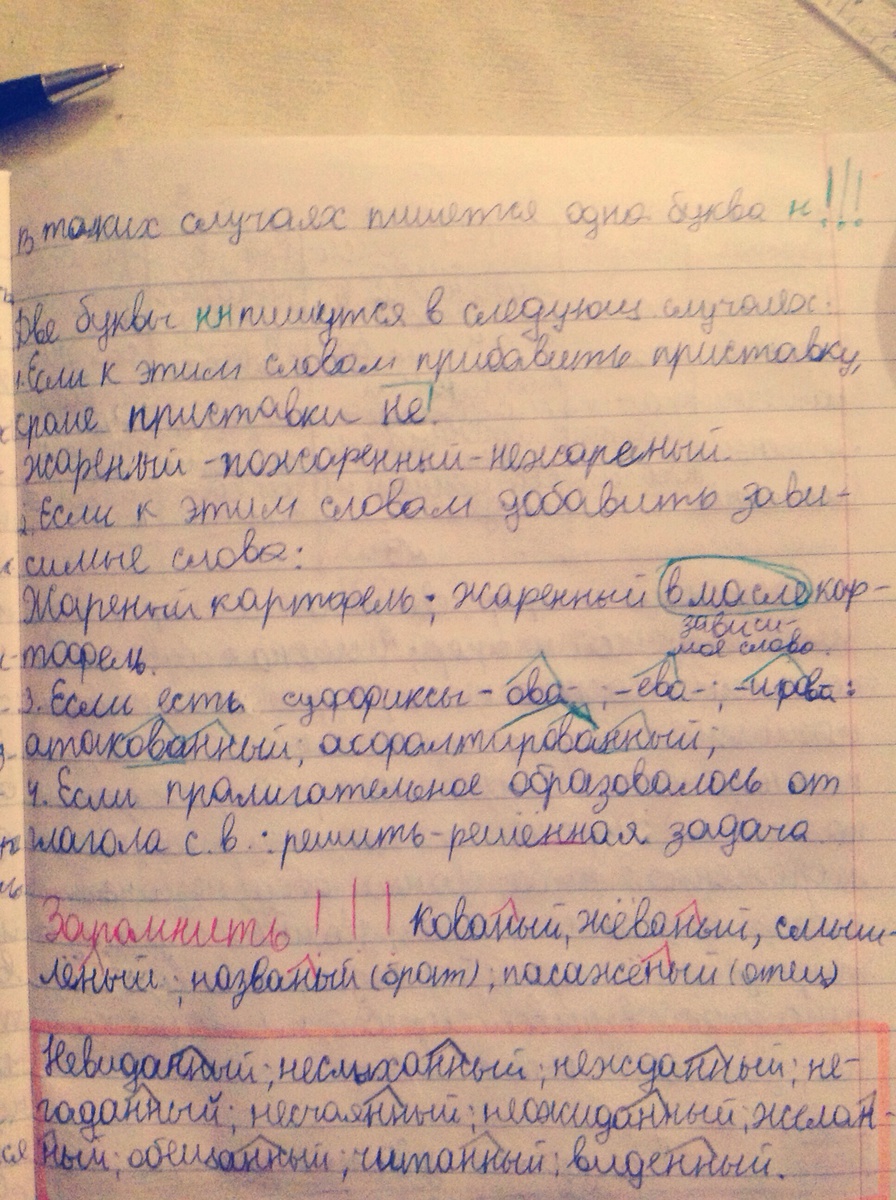 В таких случаях пишется одна буква н!!!
Две буквы нн пишутся в следующ случаях:
1. Если к этим словам прибавить приставку,
кроме приставки не!
жареный - пожаренный - нежареный.
2. Если к этим словам добавить зави-
симые слова:
Жареный картофель; жаренный в масле кар-
зависи-
мое слово.
тофель.
3. Если есть суффиксы - ова-; -ева-; -ирова:
атакованный; асфалтированный;
4. Если пралигательное образовалось от
глагола с.в.: решить - решённая задача
Запомнить!!! Кованый, жёваный, смыш-
лёный; названый (брат); пасажёный (отец)
Невиданный; неслыханный; нежданный; не-
гаданный; нечаянный; неожиданный; желан-
ный; обещанный; читанный; виденный.